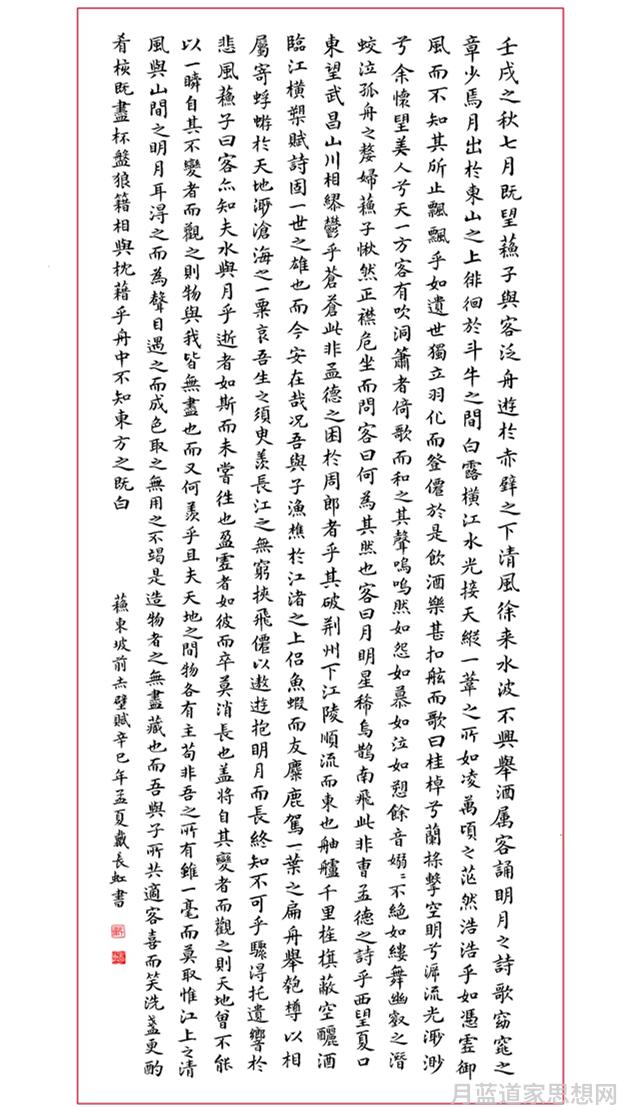 壬戌之秋七月既望蘇子與客泛舟遊於赤壁之下清風徐来水波不興舉酒属客誦明月之詩歌窈窕之
章少焉月出於東山之上徘徊於斗牛之間白露橫江水光接天縱一葦之所如凌萬頃之茫然浩浩乎如馮虛御
風而不知其所止飄飄乎如遺世獨立羽化而登僊於是飲酒樂甚扣舷而歌曰桂棹兮蘭槳擊空明兮泝流光渺渺
兮余懷望美人兮天一方客有吹洞簫者倚歌而和之其聲嗚嗚然如怨如慕如泣如愬餘音嫋〻不絕如縷舞幽壑之潛
蛟泣孤舟之嫠婦蘇子愀然正襟危坐而問客曰何為其然也客曰月明星稀烏鵲南飛此非曹孟德之詩乎西望夏口
東望武昌山川相繆鬱乎蒼蒼此非孟德之困於周郎者乎其破荊州下江陵順流而東也舳艫千里旌旗蔽空釃酒
臨江橫槊賦詩固一世之雄也而今安在哉况吾與子漁樵於江渚之上侶魚蝦而友麋鹿駕一葉之扁舟舉匏樽以相
屬寄蜉蝣於天地渺滄海之一粟哀吾生之須臾羨長江之無窮挾飛僊以遨遊抱明月而長終知不可乎驟得托遺響於
悲風蘇子曰客亦知夫水與月乎逝者如斯而未嘗往也盈虛者如彼而卒莫消長也盖将自其變者而觀之則天地曾不能
以一瞬自其不變者而觀之則物與我皆無盡也而又何羨乎且夫天地之間物各有主苟非吾之所有雖一毫而莫取惟江上之清
風與山間之明月耳得之而為聲目遇之而成色取之無用之不竭是造物者之無盡藏也而吾與子所共適客喜而笑洗盞更酌
肴核既盡杯盤狼籍相與枕藉乎舟中不知東方之既白
蘇東坡前赤壁賦辛巳年孟夏戴長虹書
月蓝道家思想网